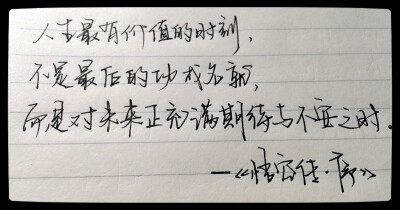 人生最有价值的时刻，
不是最后的功成名就，
而是对未来正充满期待与不安之时。
—《悟空传·序》